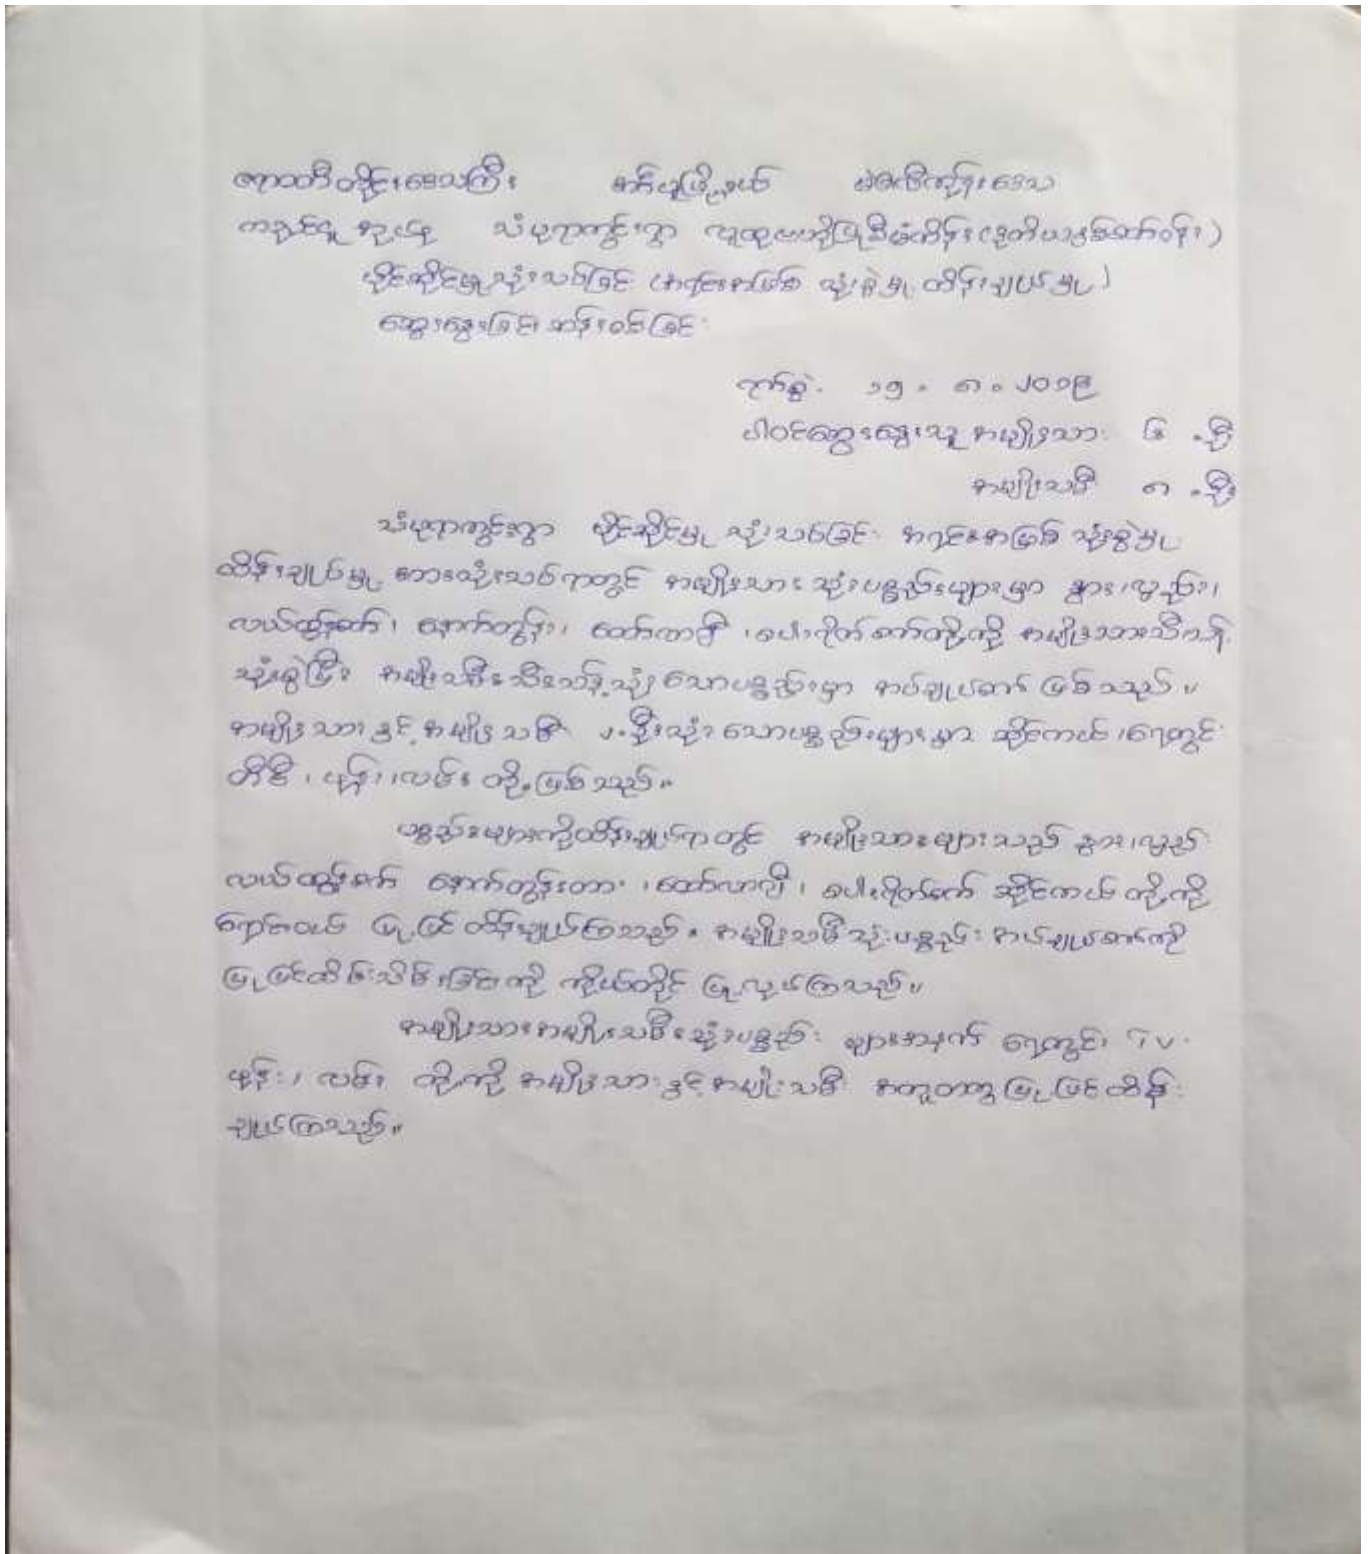 ဧရာဝတီတိုင်းဒေသကြီး ဓနုဖြူမြို့နယ်
ကညင်ငူ အုပ်စု သံပုရာကွင်းရွာ လူထုဗဟိုပြုစီမံကိန်း (ဒုတိယနှစ်စက်ဝန်း)
ပိုင်ဆိုင်မှုသုံးသပ်ခြင်း (အရင်းအမြစ် သုံးစွဲမှု ထိန်းချုပ်မှု)
ဆွေးနွေးခြင်း၊ ဆန်းစစ်ခြင်း
ရက်စွဲ။ ၁၅.၈.၂၀၁၉
ပါဝင်ဆွေးနွေးသူ အမျိုးသား ၆ ဦး
အမျိုးသမီး ၈ ဦး
သံပုရာကွင်းရွာ ပိုင်ဆိုင်မှု သုံးသပ်ခြင်း အရင်းအမြစ် သုံးစွဲမှု
ထိန်းချုပ်မှု အားသုံးသပ်ရာတွင် အမျိုးသား သုံးပစ္စည်းများမှာ နွား၊ လှည်း၊
လယ်ထွန်စက်၊ နောက်တွန်း၊ ထော်လာဂျီ၊ ပေါင်းလိုက်စက်တို့ကို အမျိုးသားသီးသန့်
သုံးစွဲပြီး အမျိုးသမီးသီးသန့်သုံး သောပစ္စည်းမှာ အပ်ချုပ်စက် ဖြစ်သည်။
အမျိုးသားနှင့် အမျိုးသမီး ၂ ဦးသုံး သောပစ္စည်းများမှာ ဆိုင်ကယ်၊ ရေတွင်း
တီဗီ၊ ဖုန်း၊ လမ်း တို့ဖြစ်သည်။
ပစ္စည်းများကိုထိန်းချုပ်ရာတွင် အမျိုးသားများသည် နွား၊ လှည်း
လယ်ထွန်စက် နောက်တွန်း ၊ ထော်လာဂျီ၊ ဆိုင်ကယ် တို့ကို
ပြုပြင်ထိန်းချုပ်ကြသည်။ အမျိုးသမီးသုံးပစ္စည်း အပ်ချုပ်စက်ကို
ပြုပြင်ထိန်းသိမ်းခြင်းကို ကိုယ်တိုင် ပြုလုပ်ကြသည်။
အမျိုးသားအမျိုးသမီးသုံးပစ္စည်း များအနက် ရေတွင်း TV
ဖုန်း၊ လမ်း တို့ကို အမျိုးသားနှင့် အမျိုးသမီး အတူတကွ ပြုပြင် ထိန်း
ချုပ်ကြသည်။